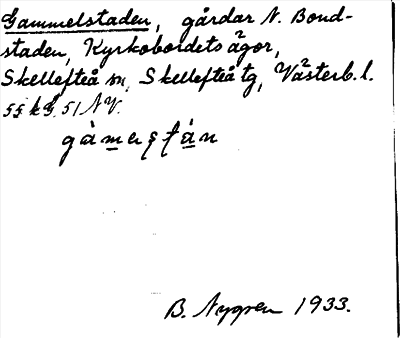 Gammelstaden, gårdar N. Bond-
staden, Kyrkobordets ägor,
Skellefteå sn, Skellefteå tg, Västerb. l.
55 k S. 51 NV.
gàmerstán
B. Nygren 1933.